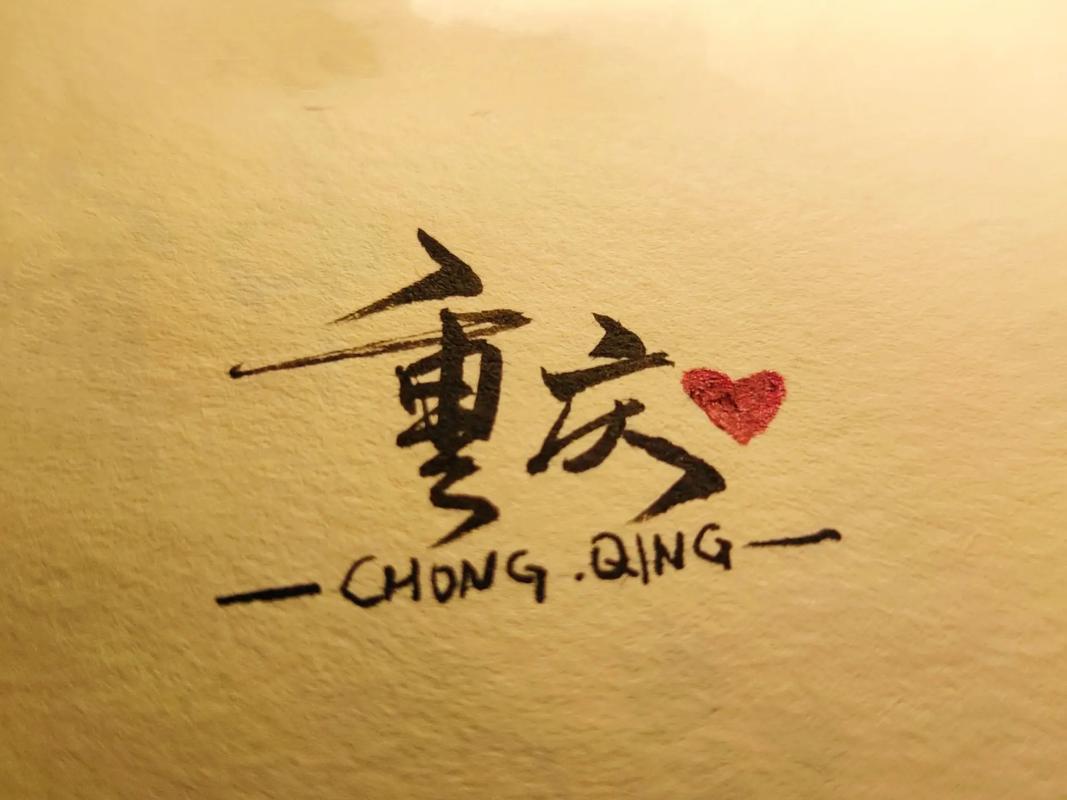 重庆
— CHONG.QING —